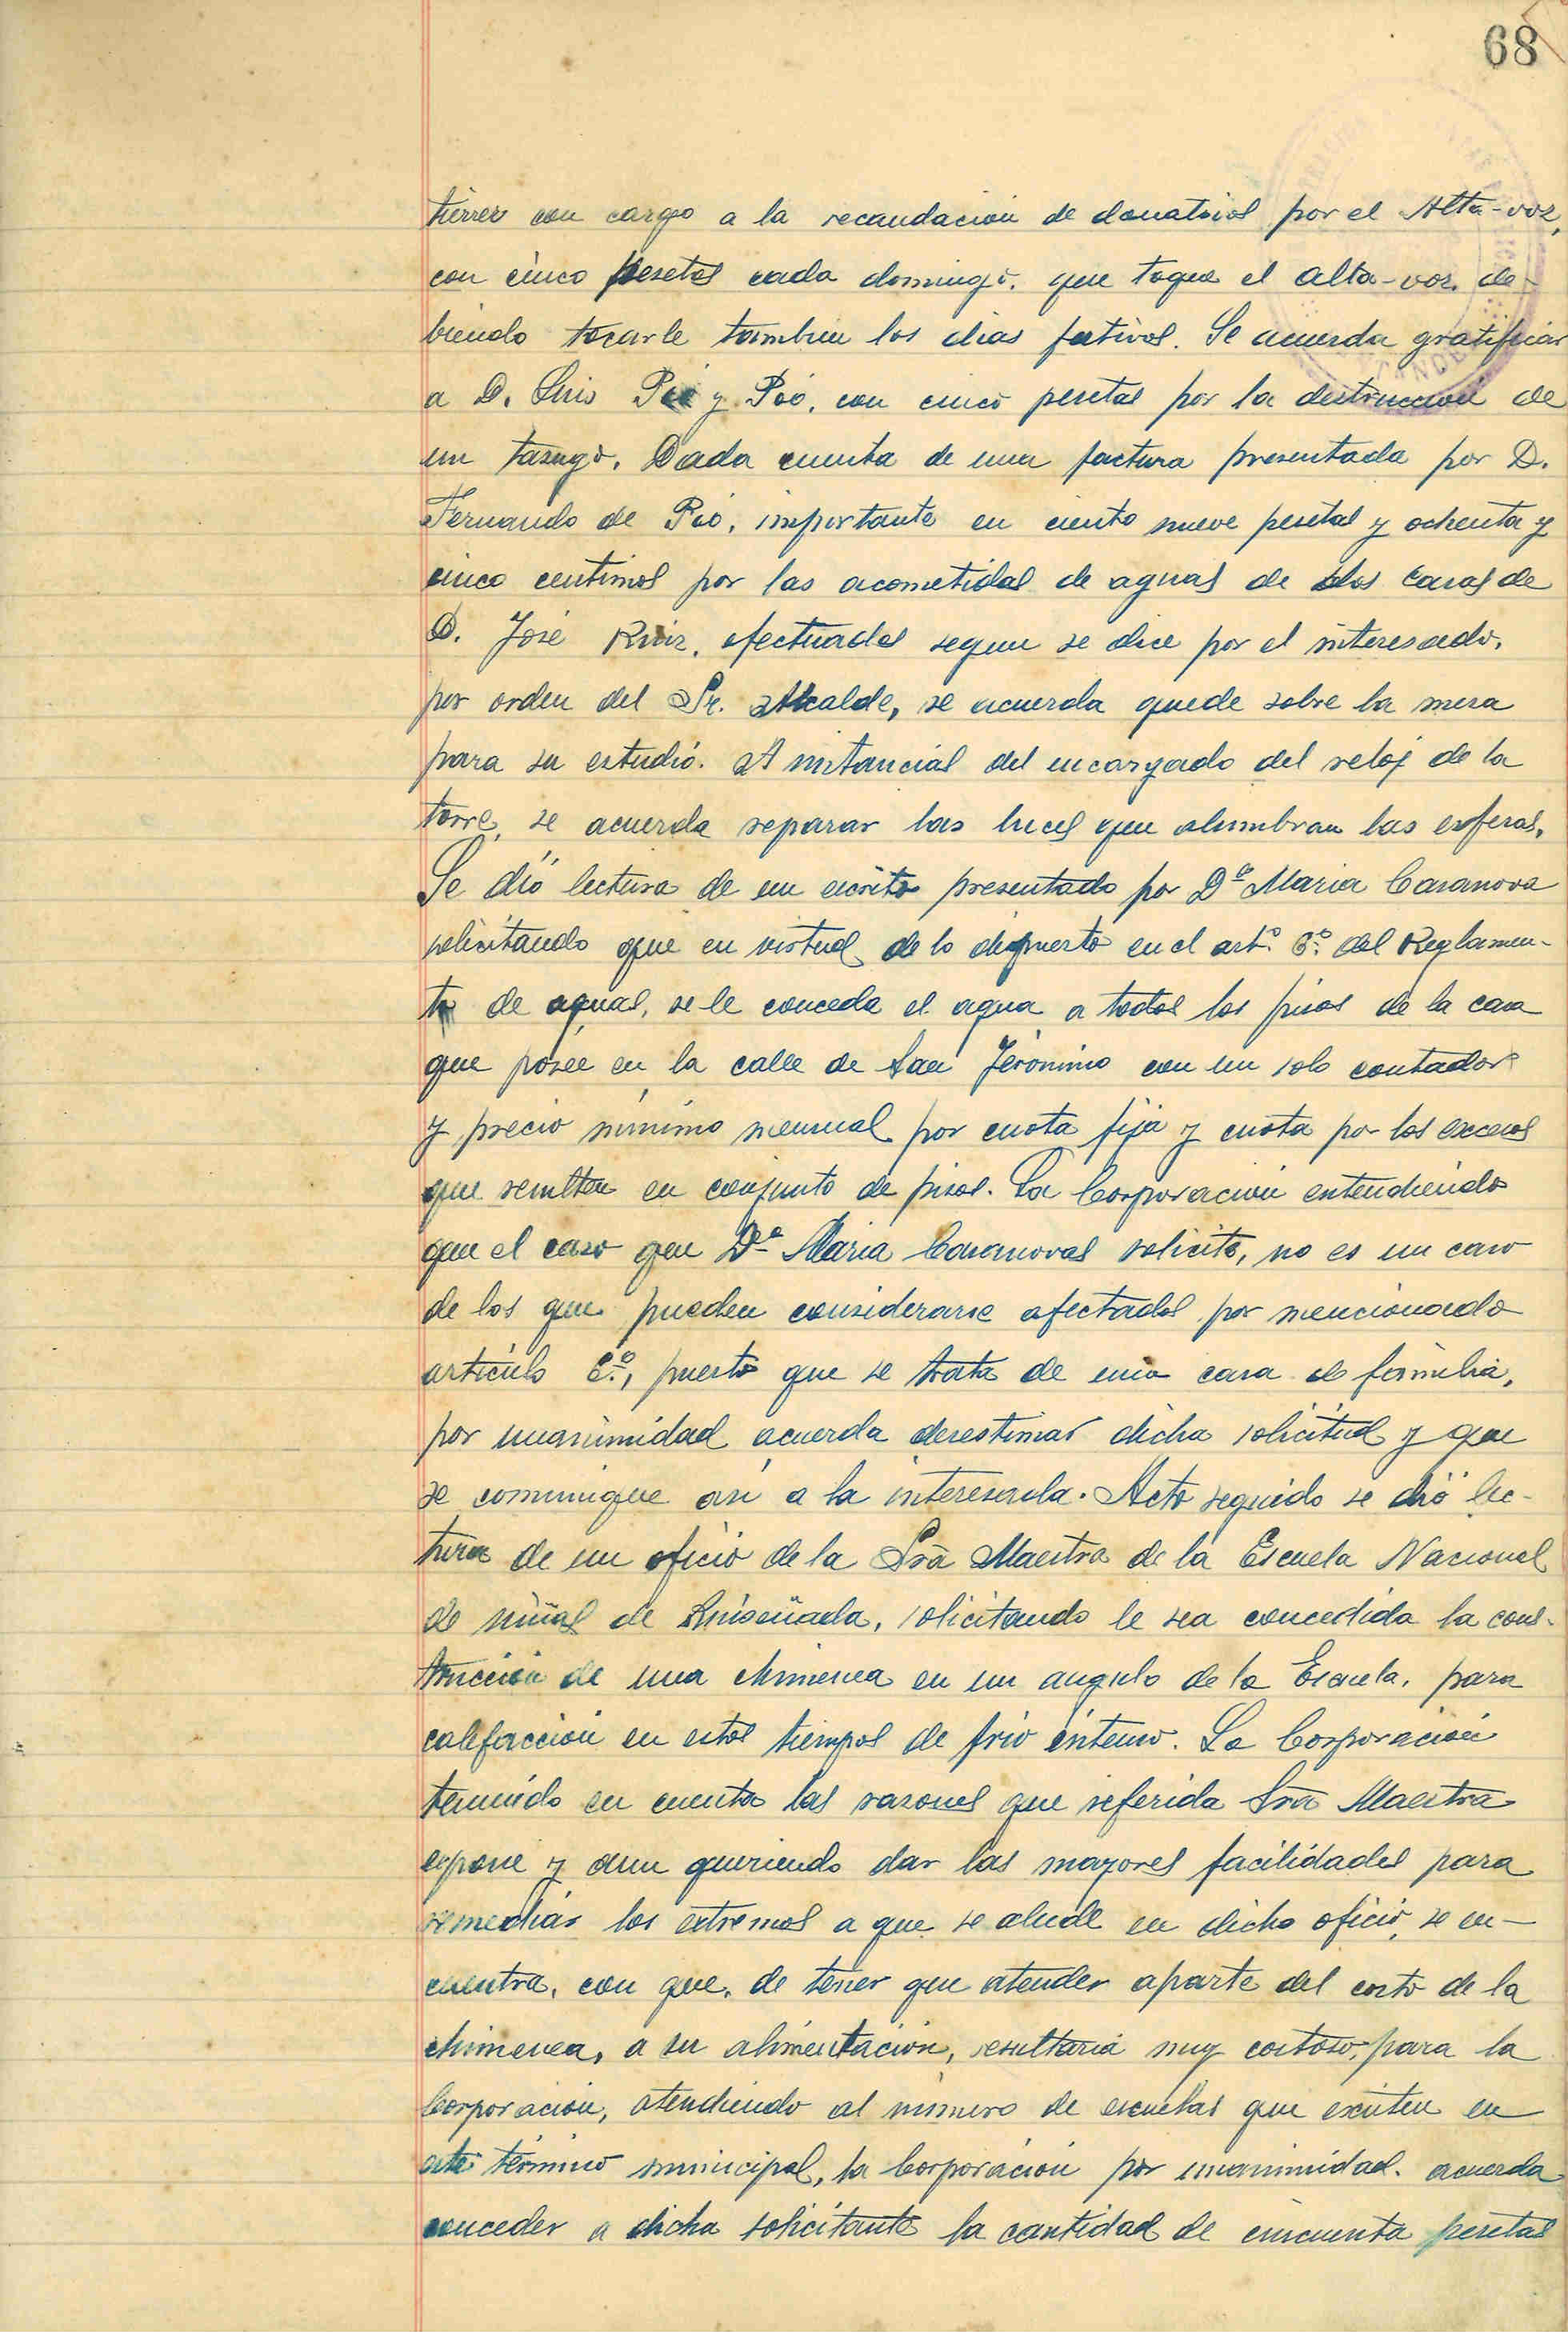 68
tierrez con cargo a la recaudación de donativos por el Alta-voz,
con cinco pesetas cada domingo, que toque el alta-voz, de-
biendo tocarle tambien los dias festivos. Se acuerda gratificar
a D. Luis Poó y Poó, con cinco pesetas por la destrucción de
un tasugo. Dada cuenta de una factura presentada por D.
Fernando de Poó, importante en ciento nueve pesetas y ochenta y
cinco centimos por las acometidas de aguas de dos casas de
D. José Ruiz, efectuadas segun se dice por el interesado,
por orden del Sr. Alcalde, se acuerda quede sobre la mesa
para su estudio. A instancias del encargado del reloj de la
torre, se acuerda reparar las luces que alumbran las esferas.
Se dió lectura de un escrito presentado por Dª Maria Casanova
solicitando que en virtud de lo dispuesto en el artº. 6º. del Reglamen-
to de aguas, se le conceda el agua a todos los pisos de la casa
que posee en la calle de San Jerónimo con un solo contador
y precio mínimo mensual por cuota fija y cuota por los excesos
que resulten en conjunto de pisos. La Corporación entendiendo
que el caso que Dª Maria Casanovas solicita, no es un caso
de los que pueden considerarse afectados por mencionado
artículo 6º, puesto que se trata de una casa de familia,
por unanimidad acuerda desestimar dicha solicitud y que
se comunique asi a la interesada. Acto seguido se dió lec-
tura de un oficio de la Srã Maestra de la Escuela Nacional
de niñas de Ruiseñada, solicitando le sea concedida la cons-
trucción de una chimenea en un angulo de la Escuela, para
calefacción en estos tiempos de frio intenso. La Corporación
teniendo en cuenta las razones que referida Srã Maestra
expone y aun queriendo dar las mayores facilidades para
remediar los extremos a que se alude en dicho oficio, se en-
cuentra, con que, de tener que atender aparte del costo de la
chimenea, a su alimentación, resultaría muy costoso, para la
Corporación, atendiendo al número de escuelas que existen en
este término municipal, la Corporación por unanimidad. acuerda
conceder a dicha solicitante la cantidad de cincuenta pesetas